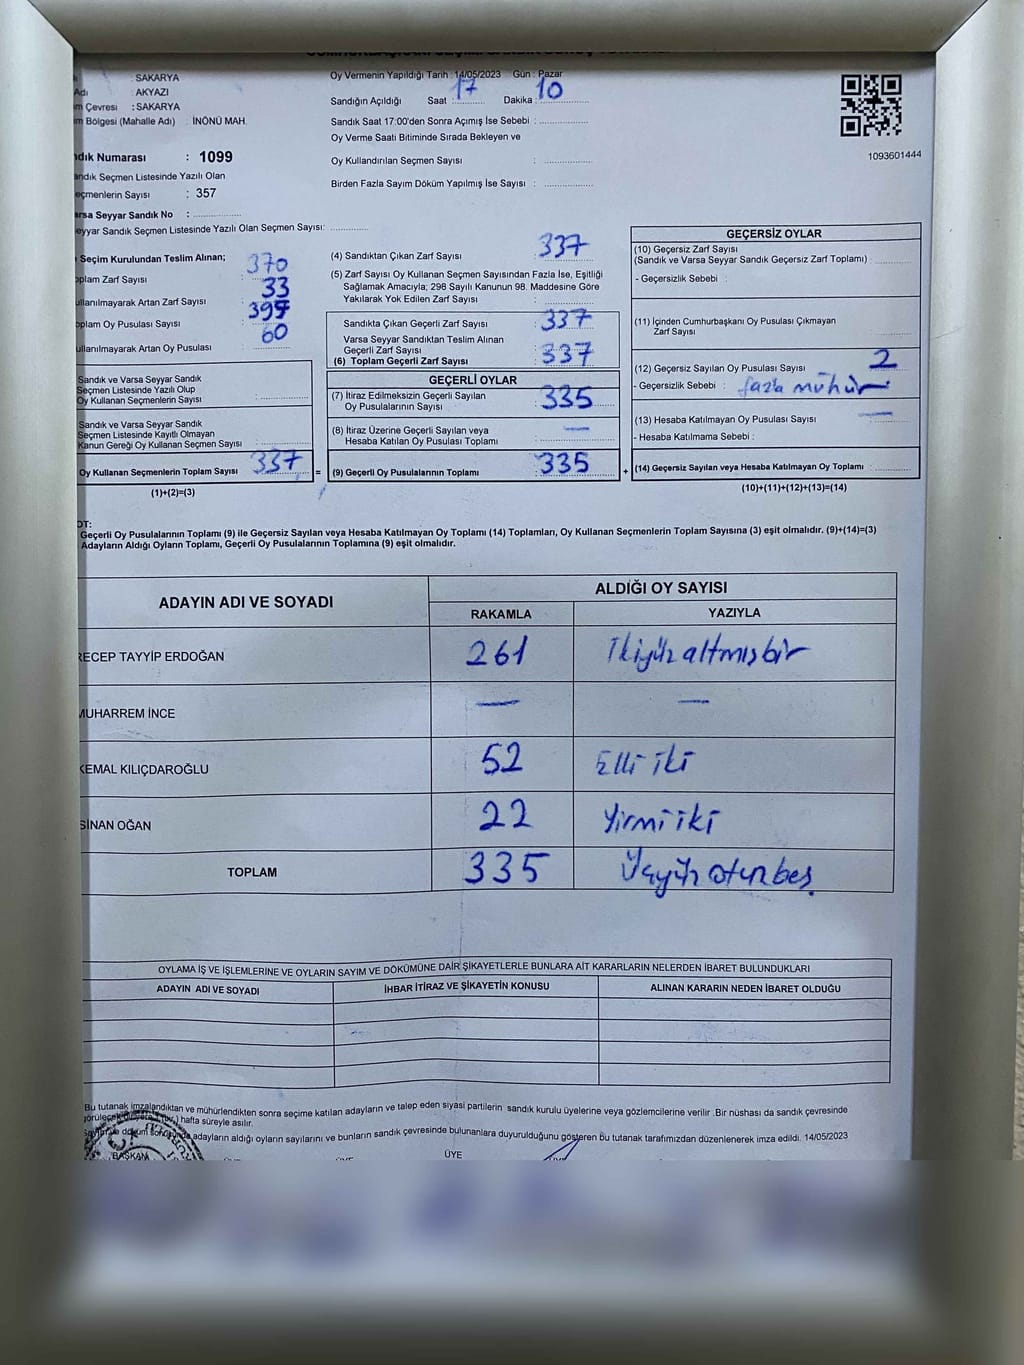 SAKARYA
: AKYAZI
Çevresi : SAKARYA
Bölgesi (Mahalle Adı) : İNÖNÜ MAH.
Numarası : 1099
Sandık Seçmen Listesinde Yazılı Olan
Seçmenlerin Sayısı : 357
Varsa Seyyar Sandık No :
Seyyar Sandık Seçmen Listesinde Yazılı Olan Seçmen Sayısı:
Oy Vermenin Yapıldığı Tarih : 14/05/2023 Gün : Pazar
Sandığın Açıldığı Saat 17 Dakika 10
Sandık Saat 17:00'den Sonra Açımış İse Sebebi :
Oy Verme Saati Bitiminde Sırada Bekleyen ve
Oy Kullandırılan Seçmen Sayısı :
Birden Fazla Sayım Döküm Yapılmış İse Sayısı :
1093601444
Seçim Kurulundan Teslim Alınan;
Zarf Sayısı : 370
Artan Zarf Sayısı : 33
Oy Pusulası Sayısı : 397
Artan Oy Pusulası : 60
Sandık ve Varsa Seyyar Sandık
Seçmen Listesinde Yazılı Olup
Oy Kullanan Seçmenlerin Sayısı :
Sandık ve Varsa Seyyar Sandık
Seçmen Listesinde Kayıtlı Olmayan
Kanun Gereği Oy Kullanan Seçmen Sayısı :
Oy Kullanan Seçmenlerin Toplam Sayısı 337 =
(1)+(2)=(3)
(4) Sandıktan Çıkan Zarf Sayısı : 337
(5) Zarf Sayısı Oy Kullanan Seçmen Sayısından Fazla İse, Eşitliği
Sağlamak Amacıyla; 298 Sayılı Kanunun 98. Maddesine Göre
Yakılarak Yok Edilen Zarf Sayısı :
Sandıkta Çıkan Geçerli Zarf Sayısı : 337
Varsa Seyyar Sandıktan Teslim Alınan
Geçerli Zarf Sayısı :
(6) Toplam Geçerli Zarf Sayısı : 337
GEÇERLİ OYLAR
(7) İtiraz Edilmeksizin Geçerli Sayılan
Oy Pusulalarının Sayısı : 335
(8) İtiraz Üzerine Geçerli Sayılan veya
Hesaba Katılan Oy Pusulası Toplamı : —
(9) Geçerli Oy Pusulalarının Toplamı : 335 +
GEÇERSİZ OYLAR
(10) Geçersiz Zarf Sayısı
(Sandık ve Varsa Seyyar Sandık Geçersiz Zarf Toplamı) :
- Geçersizlik Sebebi :
(11) İçinden Cumhurbaşkanı Oy Pusulası Çıkmayan
Zarf Sayısı :
(12) Geçersiz Sayılan Oy Pusulası Sayısı : 2
- Geçersizlik Sebebi : fazla mühür
(13) Hesaba Katılmayan Oy Pusulası Sayısı : —
- Hesaba Katılmama Sebebi :
(14) Geçersiz Sayılan veya Hesaba Katılmayan Oy Toplamı :
(10)+(11)+(12)+(13)=(14)
Geçerli Oy Pusulalarının Toplamı (9) ile Geçersiz Sayılan veya Hesaba Katılmayan Oy Toplamı (14) Toplamları, Oy Kullanan Seçmenlerin Toplam Sayısına (3) eşit olmalıdır. (9)+(14)=(3)
Adayların Aldığı Oyların Toplamı, Geçerli Oy Pusulalarının Toplamına (9) eşit olmalıdır.
ADAYIN ADI VE SOYADI ALDIĞI OY SAYISI
RAKAMLA YAZIYLA
RECEP TAYYİP ERDOĞAN 261 İkiyüz altmışbir
MUHARREM İNCE — —
KEMAL KILIÇDAROĞLU 52 Elli iki
SİNAN OĞAN 22 Yirmi iki
TOPLAM 335 Üçyüz otuzbeş
OYLAMA İŞ VE İŞLEMLERİNE VE OYLARIN SAYIM VE DÖKÜMÜNE DAİR ŞİKAYETLERLE BUNLARA AİT KARARLARIN NELERDEN İBARET BULUNDUKLARI
ADAYIN ADI VE SOYADI İHBAR İTİRAZ VE ŞİKAYETİN KONUSU ALINAN KARARIN NEDEN İBARET OLDUĞU
Bu tutanak imzalandıktan ve mühürlendikten sonra seçime katılan adayların ve talep eden siyasi partilerin sandık kurulu üyelerine veya gözlemcilerine verilir .Bir nüshası da sandık çevresinde
hafta süreyle asılır.
adayların aldığı oyların sayılarını ve bunların sandık çevresinde bulunanlara duyurulduğunu gösteren bu tutanak tarafımızdan düzenlenerek imza edildi. 14/05/2023
BAŞKAN ÜYE